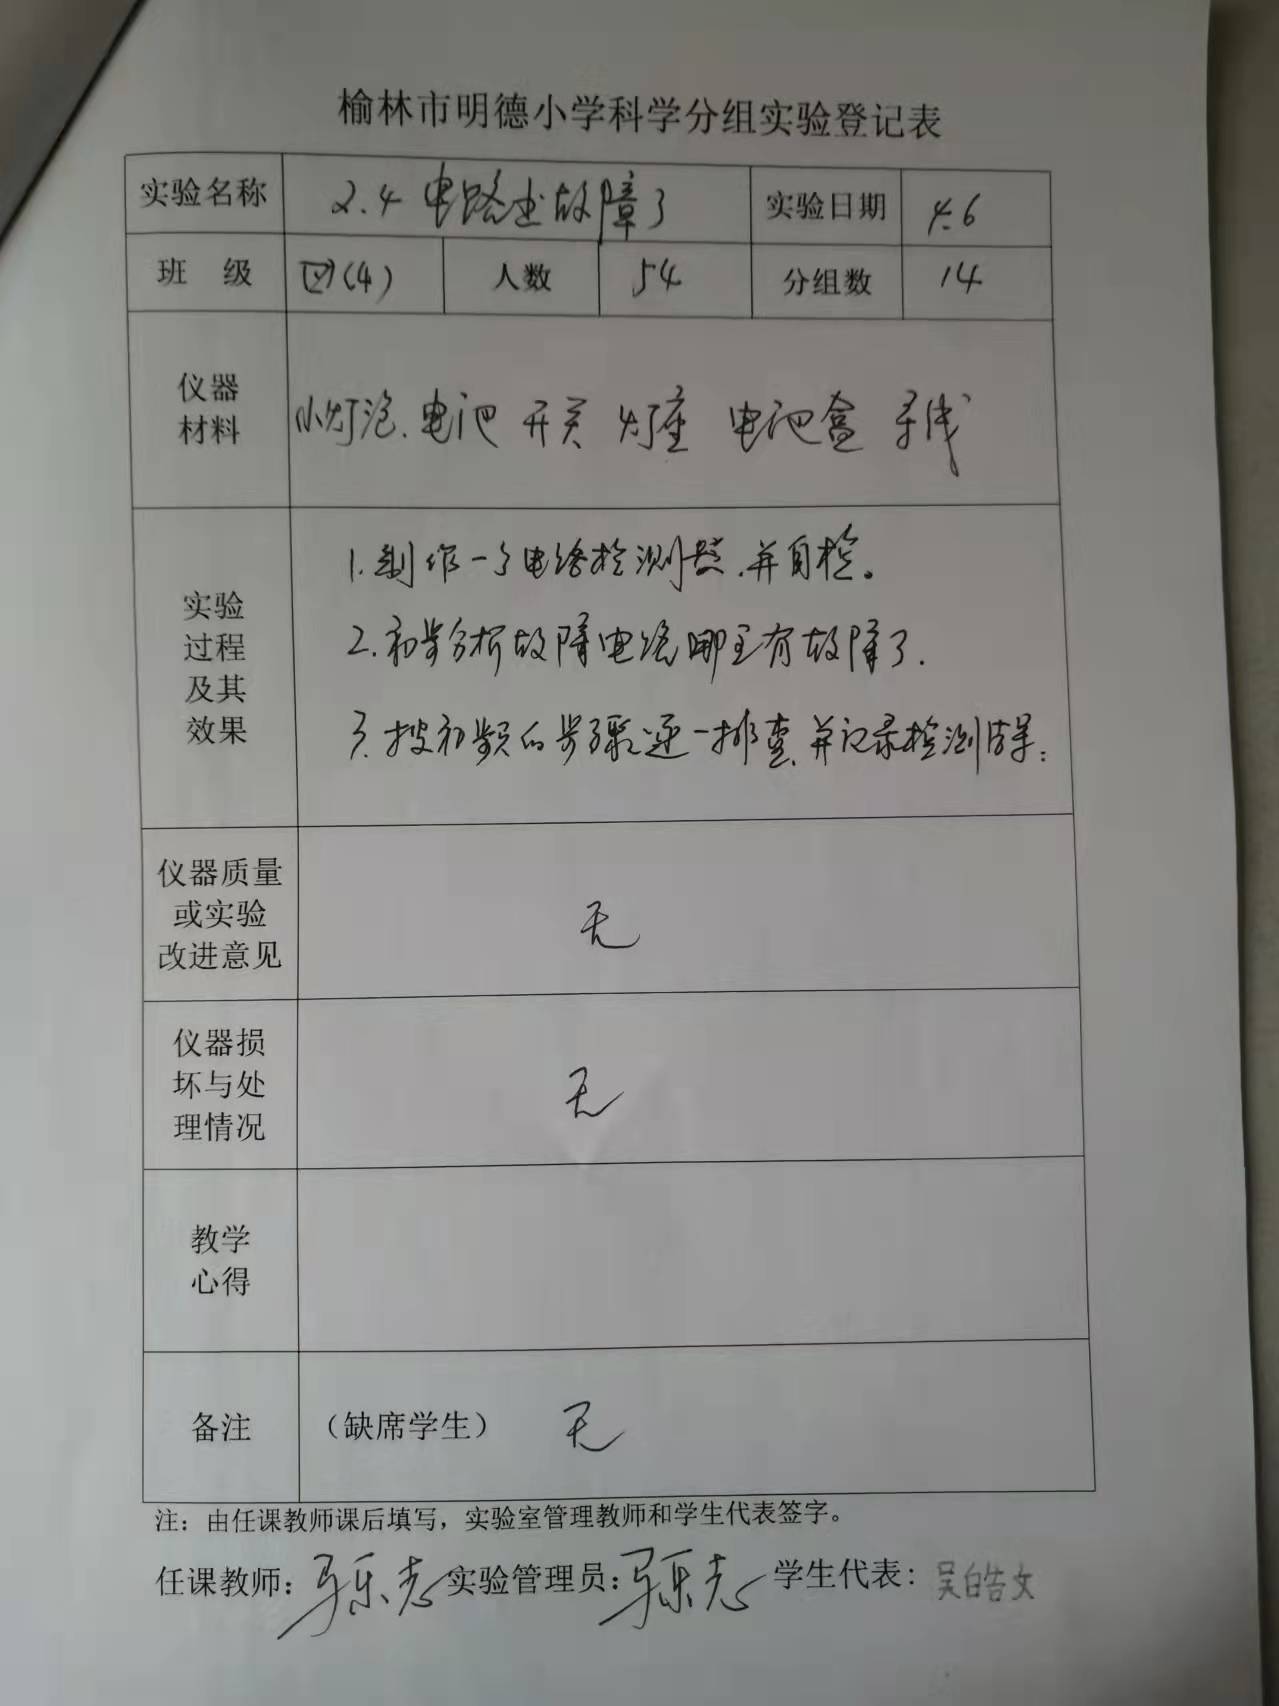 榆林市明德小学科学分组实验登记表
实验名称 2.4 电路出故障了 实验日期 4.6
班 级 四(4) 人数 54 分组数 14
仪器
材料
小灯泡、电池 开关 灯座 电池盒 导线
实验
过程
及其
效果
1.制作一个电路检测器,并自检。
2.初步分析故障电路哪里有故障了.
3.按初步的步骤逐一排查,并记录检测结果:
仪器质量
或实验
改进意见
无
仪器损
坏与处
理情况
无
教学
心得
备注 (缺席学生) 无
注:由任课教师课后填写,实验室管理教师和学生代表签字。
任课教师: 马乐志 实验管理员: 马乐志 学生代表: 吴皓文